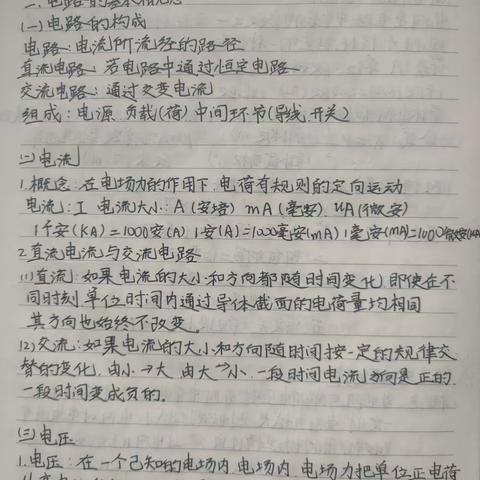 二、电路的基本概念
(一)电路的构成
电路:电流所流经的路径
直流电路:若电路中通过恒定电路
交流电路:通过交变电流
组成:电源.负载(荷)中间环节(导线.开关)
(二)电流
1.概念:在电场力的作用下,电荷有规则的定向运动
电流:I 电流大小:A(安培) mA(毫安).uA(微安)
1千安(KA)=1000安(A) 1安(A)=1000毫安(mA) 1毫安(MA)=1000微安(uA
2.直流电流与交流电路
(1)直流:如果电流的大小和方向都随时间变化,即使在不
同时刻单位时间内通过导体截面的电荷量均相同
其方向也始终不改变。
(2)交流:如果电流的大小和方向随时间按一定的规律交
替的变化.由小→大 由大→小.一段时间电流方向是正的.
一段时间变成负的.
(三)电压
1.电压:在一个已知的电场内.电场内.电场力把单位正电荷